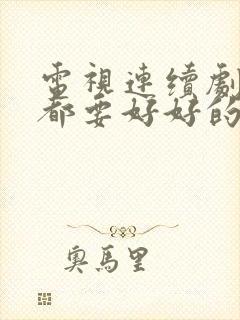 電視連續劇
都要好好的
奧馬里